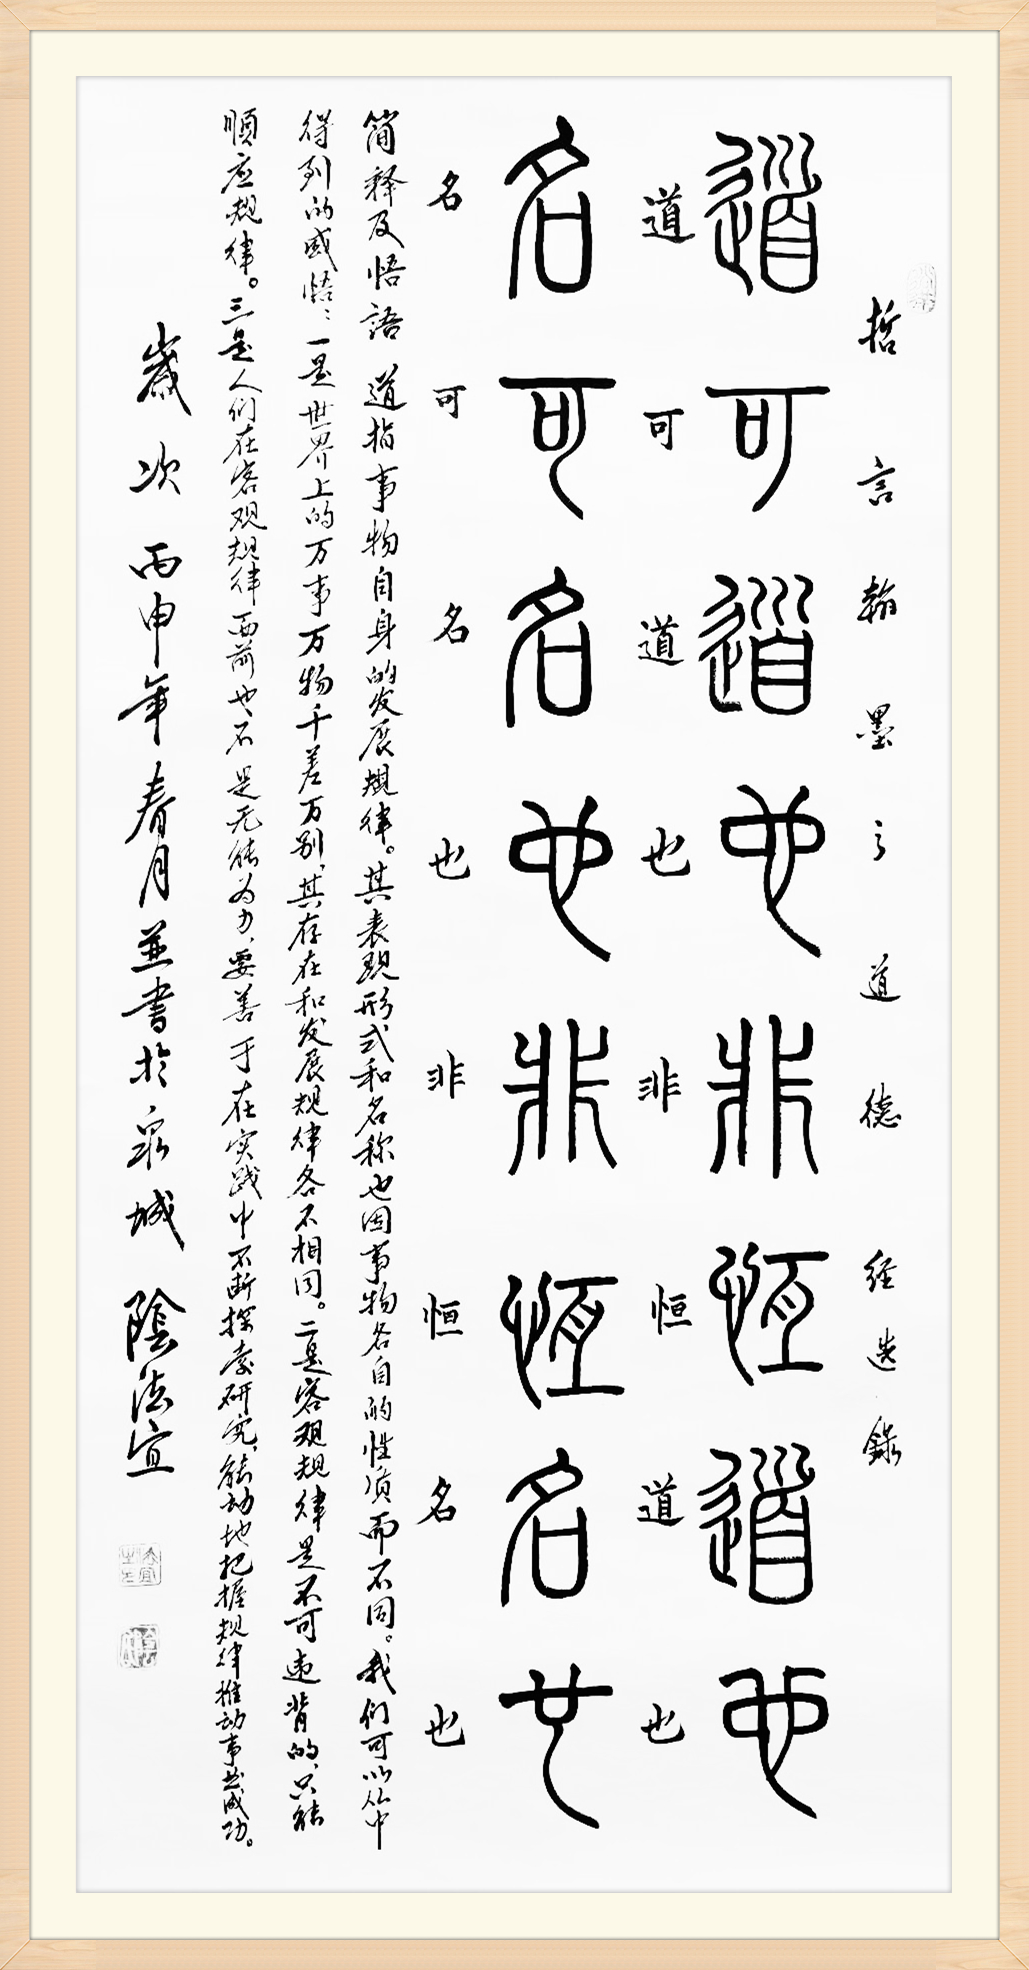 哲言翰墨之道德经选録
道可道也非恒道也
道可道也非恒道也
名可名也非恒名也
名可名也非恒名也
简释及悟語 道指事物自身的发展规律。其表现形式和名称也因事物各自的性质而不同。我们可以从中
得到的感悟：一是世界上的万事万物千差万别，其存在和发展规律各不相同。二是客观规律是不可违背的，只能
順应规律。三是人们在客观规律面前也不是无能为力，要善于在实践中不断探索研究，能动地把握规律推动事业成功。
歲次丙申年春月並書於泉城 陰法宜